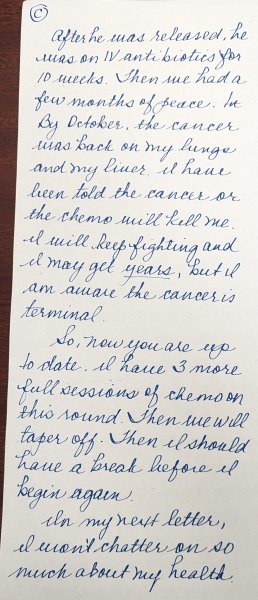 C
After he was released, he
was on IV antibiotics for
10 weeks. Then we had a
few months of peace. In
By October, the cancer
was back on my lungs
and my liver. I have
been told the cancer or
the chemo will kill me.
I will keep fighting and
I may get years, but I
am aware the cancer is
terminal.
So, now you are up
to date. I have 3 more
full sessions of chemo on
this round. Then we will
taper off. Then I should
have a break before I
begin again.
In my next letter,
I won't chatter on so
much about my health.